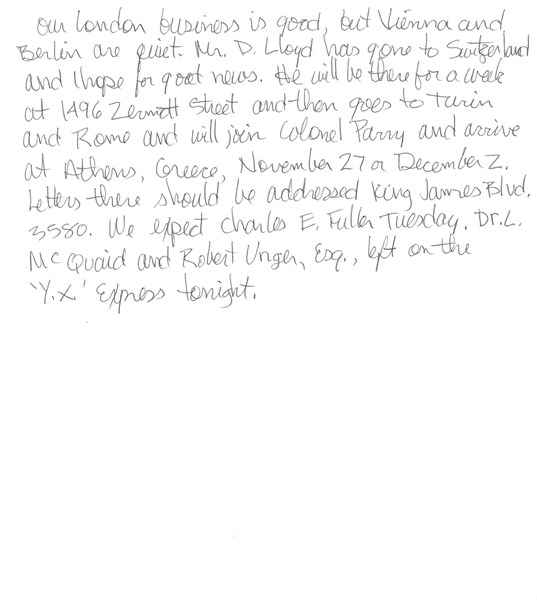 Our London business is good, but Vienna and
Berlin are quiet. Mr. D. Lloyd has gone to Switzerland
and I hope for good news. He will be there for a week
at 1496 Zermott Street and then goes to Turin
and Rome and will join Colonel Parry and arrive
at Athens, Greece, November 27 or December 2.
Letters there should be addressed King James Blvd.
3580. We expect Charles E. Fuller Tuesday. Dr. L.
McQuaid and Robert Unger, Esq., left on the
'Y.X.' Express tonight.